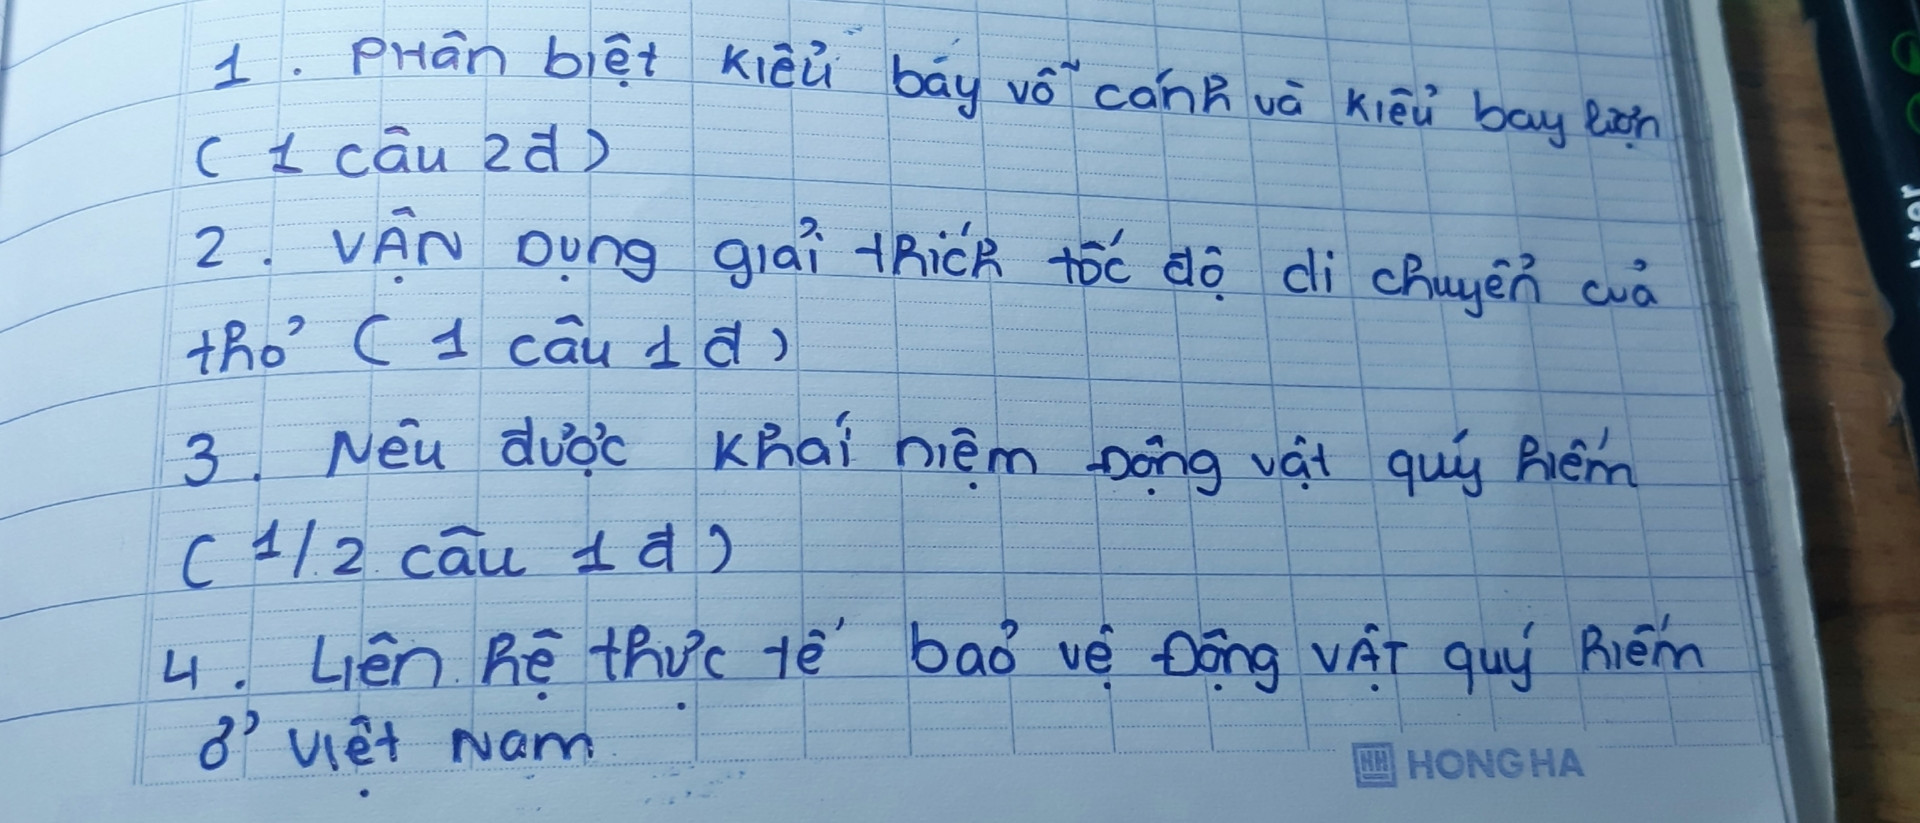 1. PHân biệt kiểu báy vỗ cánh và kiểu bay lượn
( 1 câu 2đ)
2. VẬN Dụng giải thích tốc độ di chuyển của
thỏ ( 1 câu 1 đ)
3. Nêu được khái niệm Động vật quý hiếm
( 1/2 câu 1 đ)
4. Liên hệ thực tế bảo vệ Động VẬT quý hiếm
ở Việt Nam
HH HONG HA